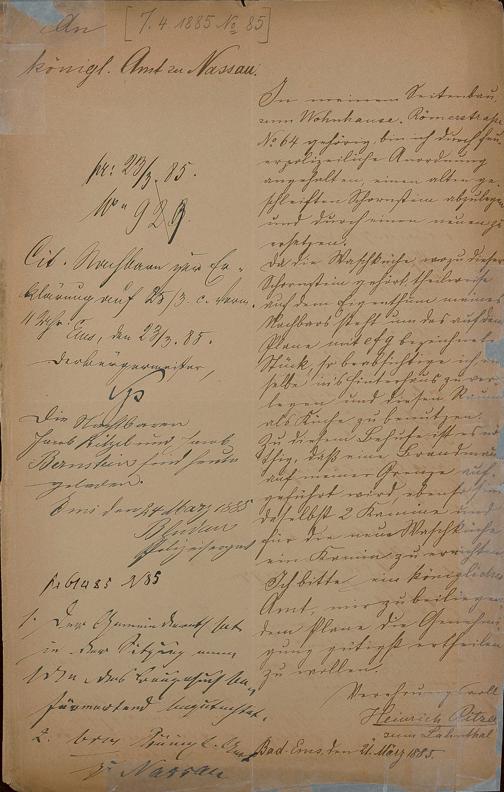 An [7. 4 1885 No 85]
königl. Amt zu Nassau.
In meinem Seitenbau
zum Wohnhause, Römerstraße
No 64 gehörig, bin ich durch feu
erpolizeiliche Anordnung
angehalten, einen alten ge
schleiften Schornstein abzulegen
und durch einen neuen zu
ersetzen.
Da die Waschküche, wozu dieser
Schornstein gehört, theilweise
auf dem Eigenthum meines
Nachbars steht um das auf dem
Plane mit efg bezeichnete
Stück, so beabsichtige ich
selbe ins Hinterhaus zu ver
legen und diesen Raum
als Küche zu benutzen.
Zu diesem Behufe ist es nö
thig, daß eine Brandmauer
auf meiner Grenze auf
geführt wird, ebenso
daselbst 2 Kamine und
für die neue Waschküche
ein Kamin zu errichten
Ich bitte, ein Königliches
Amt, mir zu beiliegen
dem Plane die Genehmi
gung gütigst ertheilen
zu wollen.
Verehrungsvoll
Heinrich
zum Lahnthal
Bad-Ems, den 21. März 1885.
pr. 23/3. 85.
No 929
Cit. Nachbarn zur Er-
klärung auf 25/3. c. Vorm.
11 Uhr. Ems, den 23/3. 85.
Der Bürgermeister,
Die Nachbaren
Jacob
Bernstein sind heute
geladen.
Ems den 24 März 1885
Polizeisergeant
85 No 85
1. Der Gemeinderath hat
in der Sitzung vom
das Baugesuch be-
fürwortend begutachtet.
2. dem Königl. Amt
zu Nassau